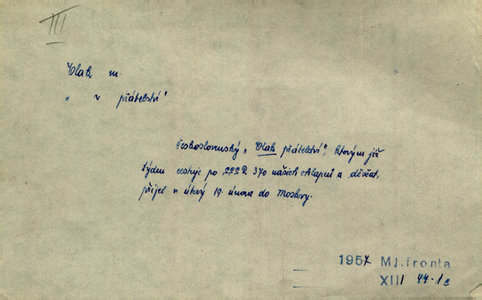 III
Vlak m.
„ v přátelství"
Československý „Vlak přátelství", kterým již
týden cestuje po SSSR 370 našich chlapců a děvčat,
přijel v úterý 19. února do Moskvy.
1957 Ml.fronta
XIII 44-1c